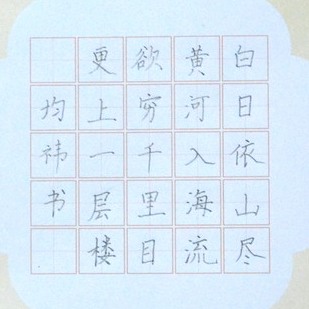 白日依山尽
黄河入海流
欲穷千里目
更上一层楼
均祎书